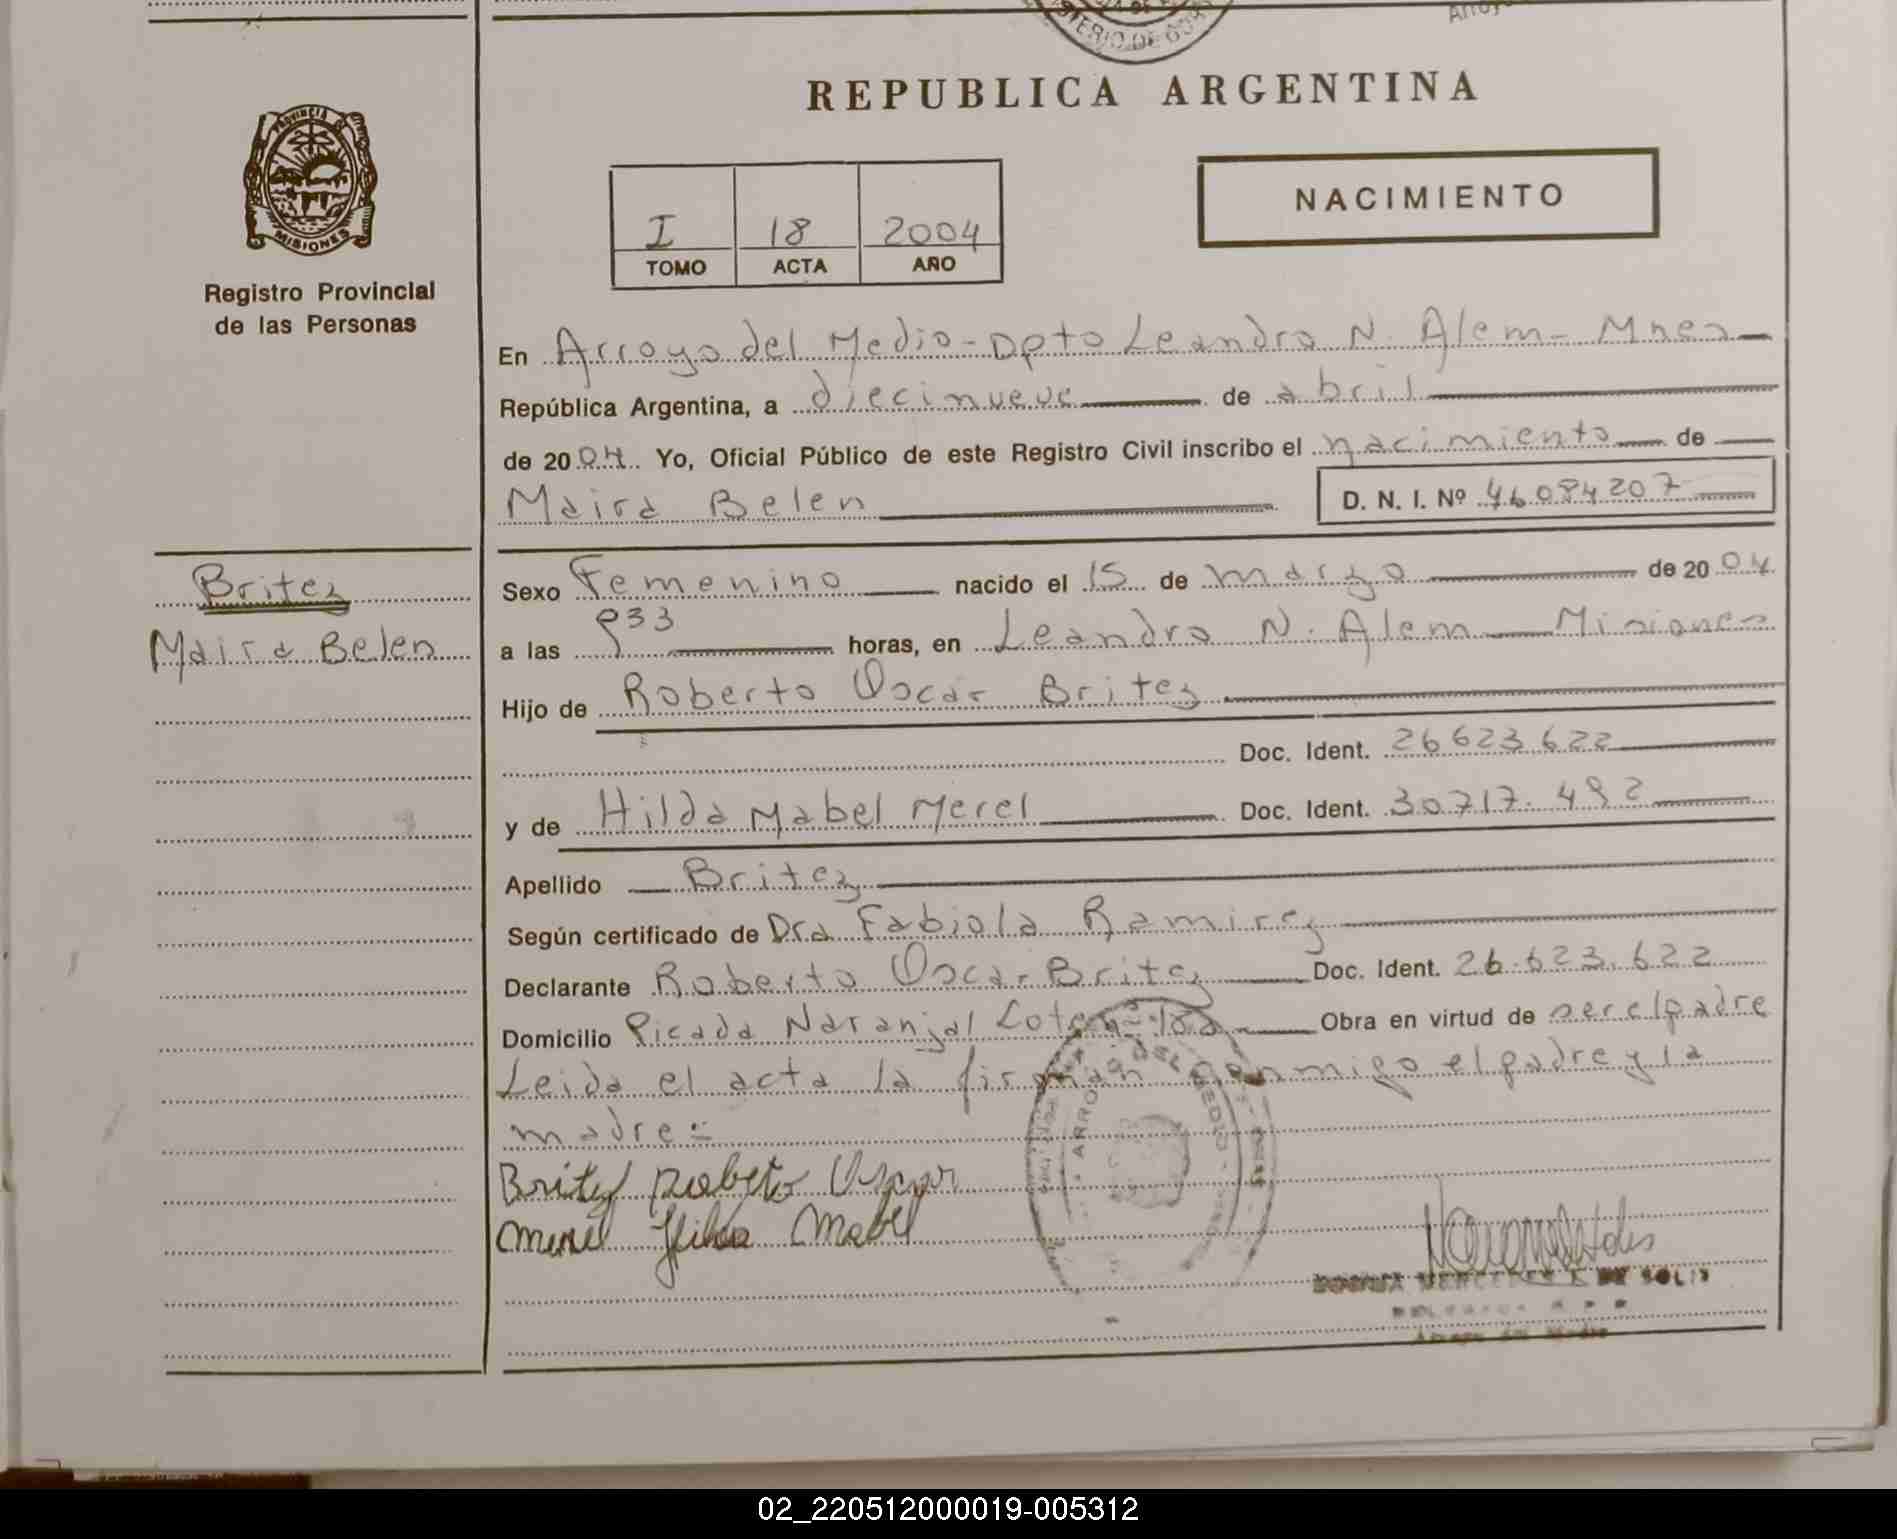 MINISTERIO DE GOB
Arroyo
REPUBLICA ARGENTINA
PROVINCIA DE
MISIONES
Registro Provincial
de las Personas
I 18 2004
TOMO ACTA AÑO
NACIMIENTO
En Arroyo del Medio - Dpto Leandro N. Alem - Mnes
República Argentina, a diecinueve de abril
de 2004. Yo, Oficial Público de este Registro Civil inscribo el nacimiento de
Maira Belen D. N. I. Nº 46084207
Britez
Maira Belen
Sexo Femenino nacido el 15 de marzo de 2004
a las 933 horas, en Leandro N. Alem - Misiones
Hijo de Roberto Oscar Britez
Doc. Ident. 26623622
y de Hilda Mabel Merel Doc. Ident. 30717.492
Apellido Britez
Según certificado de Dra Fabiola Ramirez
Declarante Roberto Oscar Britez Doc. Ident. 26.623.622
Domicilio Picada Naranjal Lote Obra en virtud de ser el padre
Leida el acta la firman conmigo el padre y la
madre=
Britez Roberto Oscar
Merel Hilda Mabel
ARROYO DEL MEDIO
MERCEDES DE SOLIS
Arroyo del Medio
02_220512000019-005312